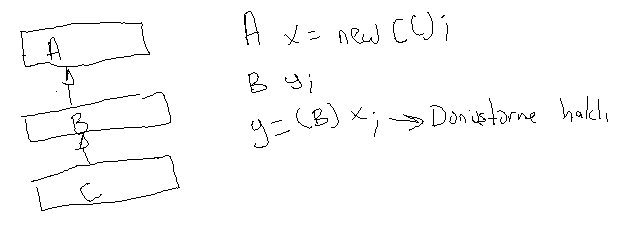 A
B
C
A x = new C();
B y;
y = (B) x; → Dönüştürme haklı